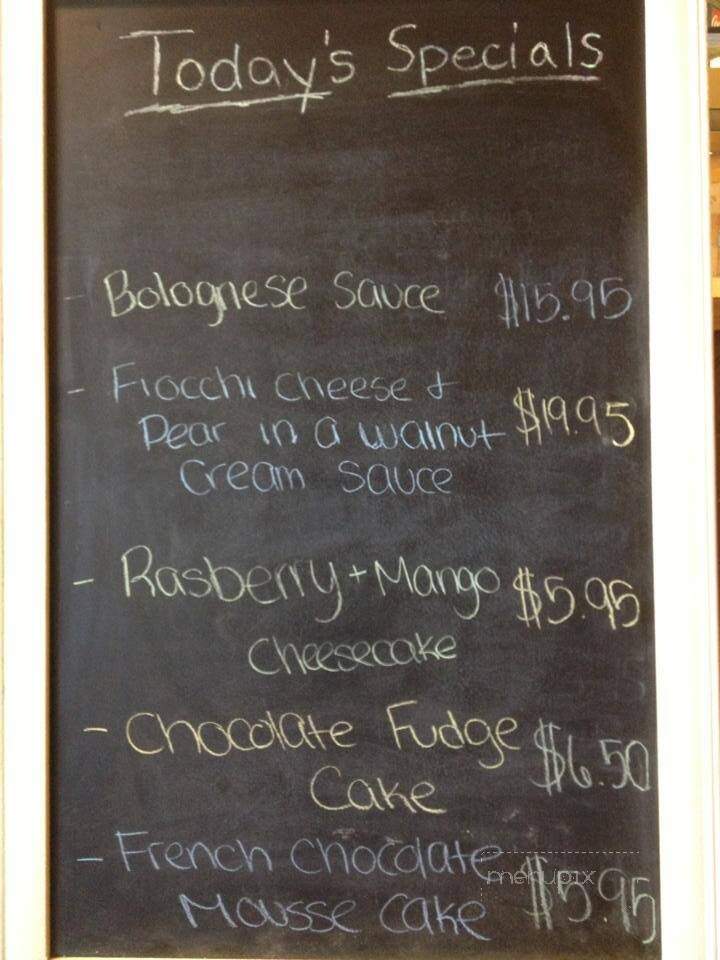 Today's Specials
- Bolognese Sauce $15.95
- Fiocchi cheese &
Pear in a walnut $19.95
Cream sauce
- Rasberry + Mango $5.95
Cheesecake
- Chocolate Fudge $6.50
Cake
- French chocolate
menupix
Mousse cake $5.95